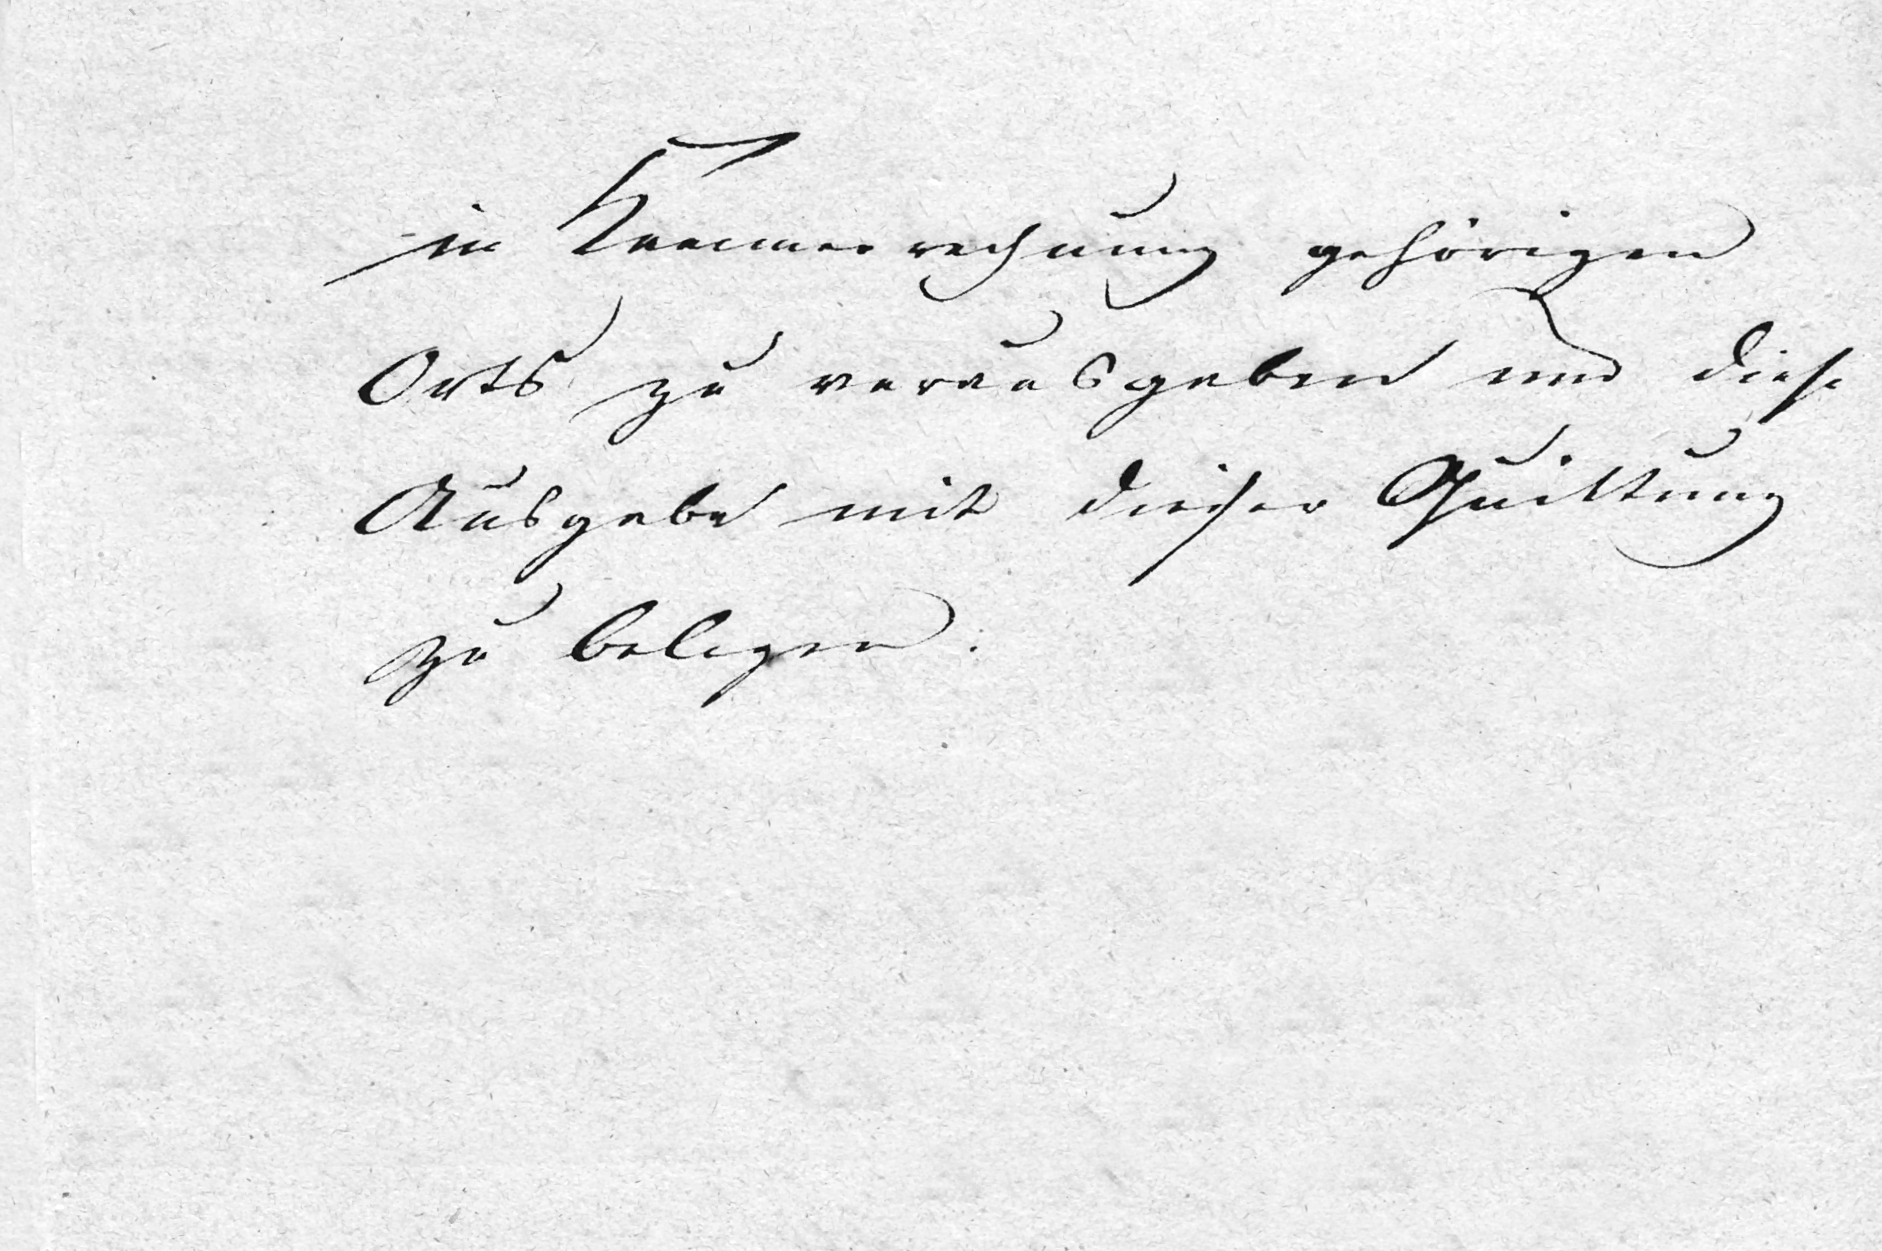 in Kammerrechnung gehörigen
Orts zu verausgaben und diese
Ausgabe mit dieser Quittung
zu belegen.